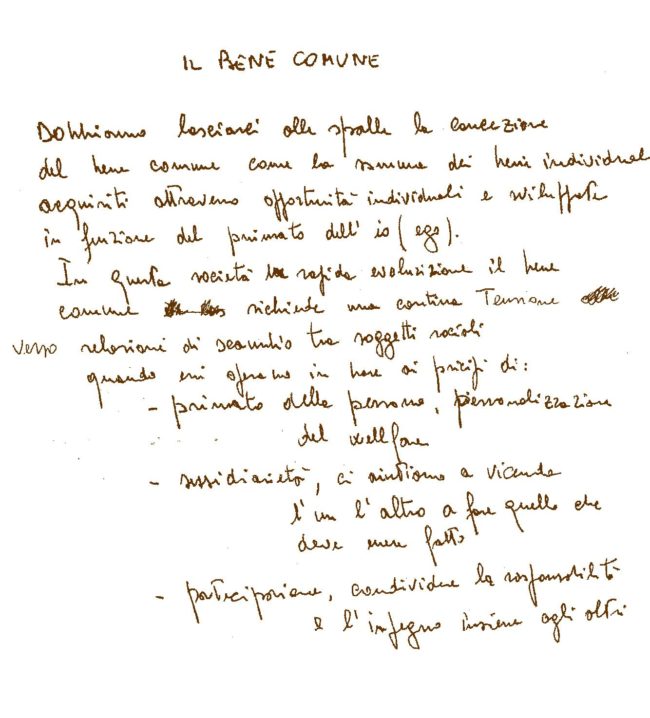 IL BENE COMUNE
Dobbiamo lasciarci alle spalle la concezione
del bene comune come la somma dei beni individuali
acquisiti attraverso opportunità individuali e sviluppate
in funzione del primato dell' io (ego).
In questa società in rapida evoluzizione il bene
comune richiede una contina Tensione
verso relazioni di scambio tra soggetti sociali
quando essi operano in base ai pricipi di:
- primato della persona, personalizzazione
del wellfare
- sussidiarietà, ci aiutiamo a vicenda
l'un l'altro a fare quello che
deve essere fatto
- partecipazione, condividere la resposabilità
e l'impegno insieme agli altri